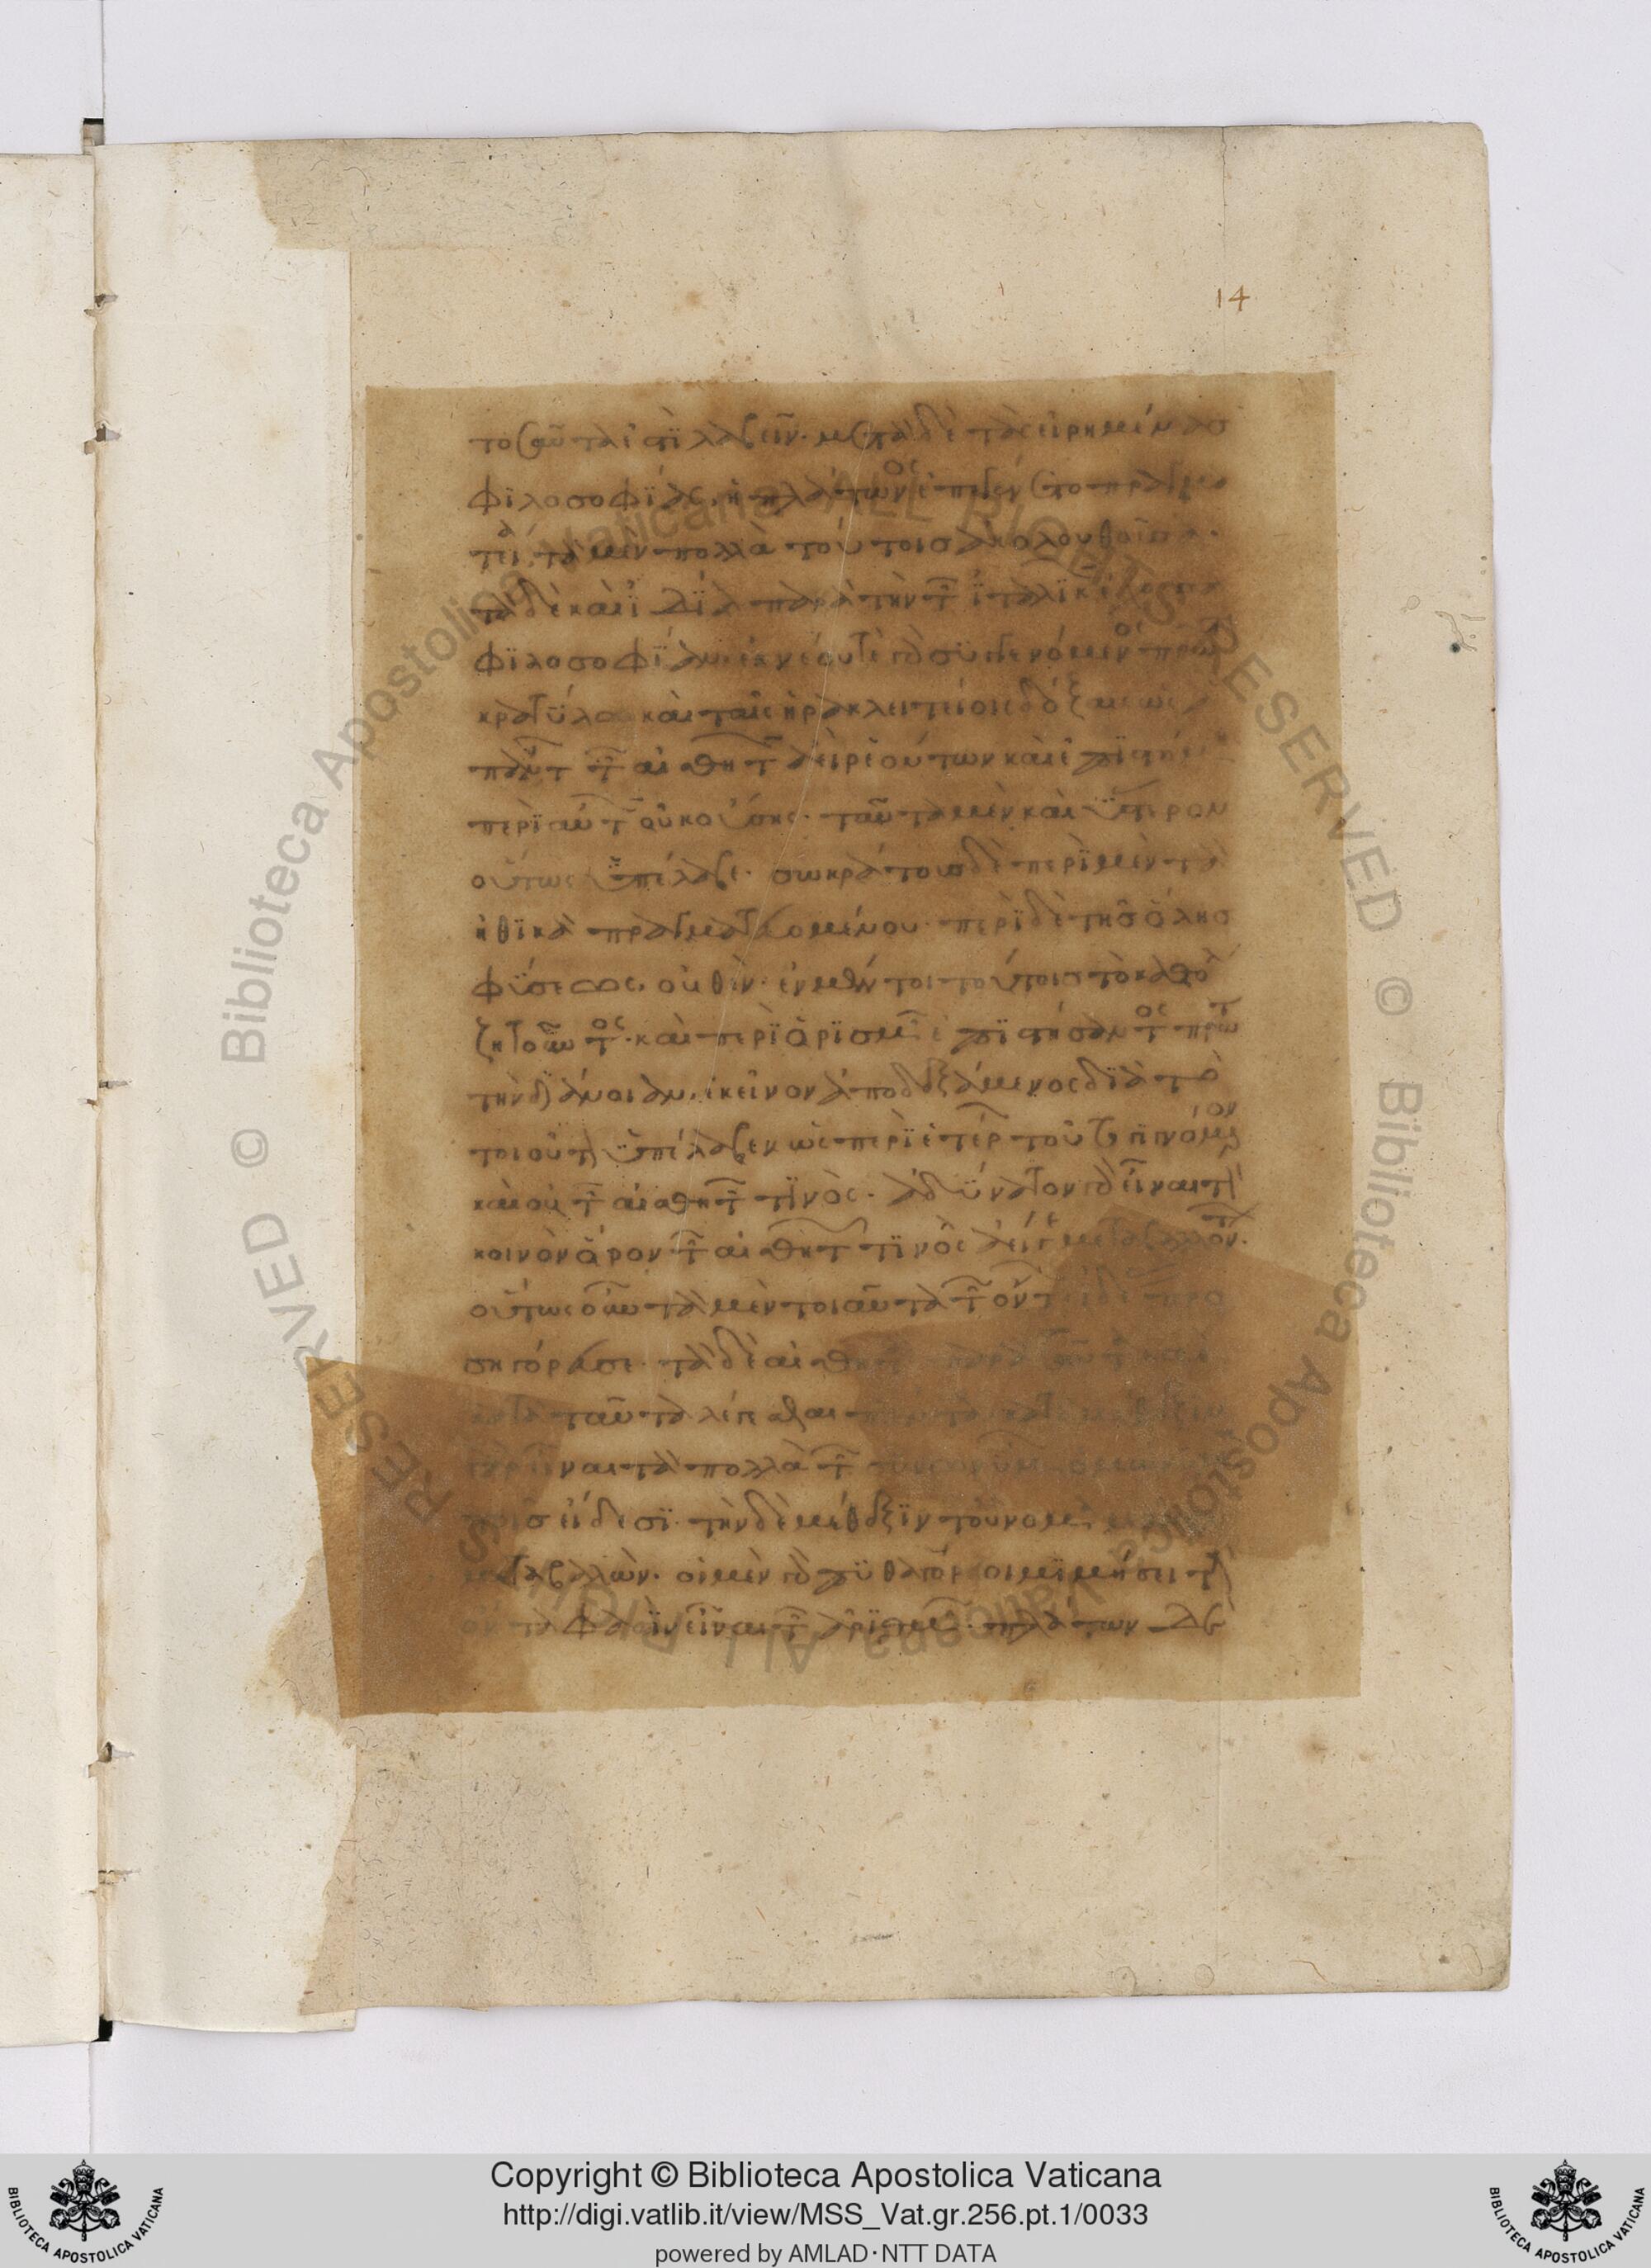 14
τοσαῦτα ἐστὶ λαβεῖν. μετὰ δὲ τὰς εἰρημένας
φιλοσοφίας, ἡ πλάτωνος ἐπεγένετο πραγμα
τεία. τὰ μὲν πολλὰ τούτοις ἀκολουθοῦσα.
τὰ δὲ καὶ ἴδια παρὰ τὴν τῶν ἰταλικῶν
φιλοσοφίαν. ἐκ νέου τε γὰρ συγγενόμενος πρῶτον
κρατύλῳ καὶ ταῖς ἡρακλειτείοις δόξαις ὡς
πάντων τῶν αἰσθητῶν ἀεὶ ῥεόντων καὶ ἐπιστήμης
περὶ αὐτῶν οὐκ οὔσης. ταῦτα μὲν καὶ ὕστερον
οὕτως ὑπέλαβε. σωκράτους δὲ περὶ μὲν τὰ
ἠθικὰ πραγματευομένου. περὶ δὲ τῆς ὅλης
φύσεως, οὐθέν. ἐν μέντοι τούτοις τὸ καθόλου
ζητοῦντος. καὶ περὶ ὁρισμῶν ἐπιστήσαντος πρώτου
τὴν διάνοιαν, ἐκεῖνον ἀποδεξάμενος διὰ τὸ
τοιοῦτον ὑπέλαβεν ὡς περὶ ἑτέρων τοῦτο γινόμενον
καὶ οὐ τῶν αἰσθητῶν τινός. ἀδύνατον γὰρ εἶναι τὸν
κοινὸν ὅρον τῶν αἰσθητῶν τινὸς ἀεί γε μεταβαλλόντων.
οὕτως οὖν τὰ μὲν τοιαῦτα τῶν ὄντων ἰδέας προ
σηγόρευσε. τὰ δὲ αἰσθητὰ παρὰ ταῦτα
κατὰ ταῦτα λέγεσθαι πάντα κατὰ μέθεξιν
γὰρ εἶναι τὰ πολλὰ τῶν συνωνύμων
τοῖς εἴδεσι. τὴν δὲ μέθεξιν τοὔνομα
μεταβαλών. οἱ μὲν γὰρ πυθαγόρειοι μιμήσει τὰ
ὄντα φασὶν εἶναι τῶν ἀριθμῶν. πλάτων δὲ
Copyright © Biblioteca Apostolica Vaticana
http://digi.vatlib.it/view/MSS_Vat.gr.256.pt.1/0033
powered by AMLAD·NTT DATA